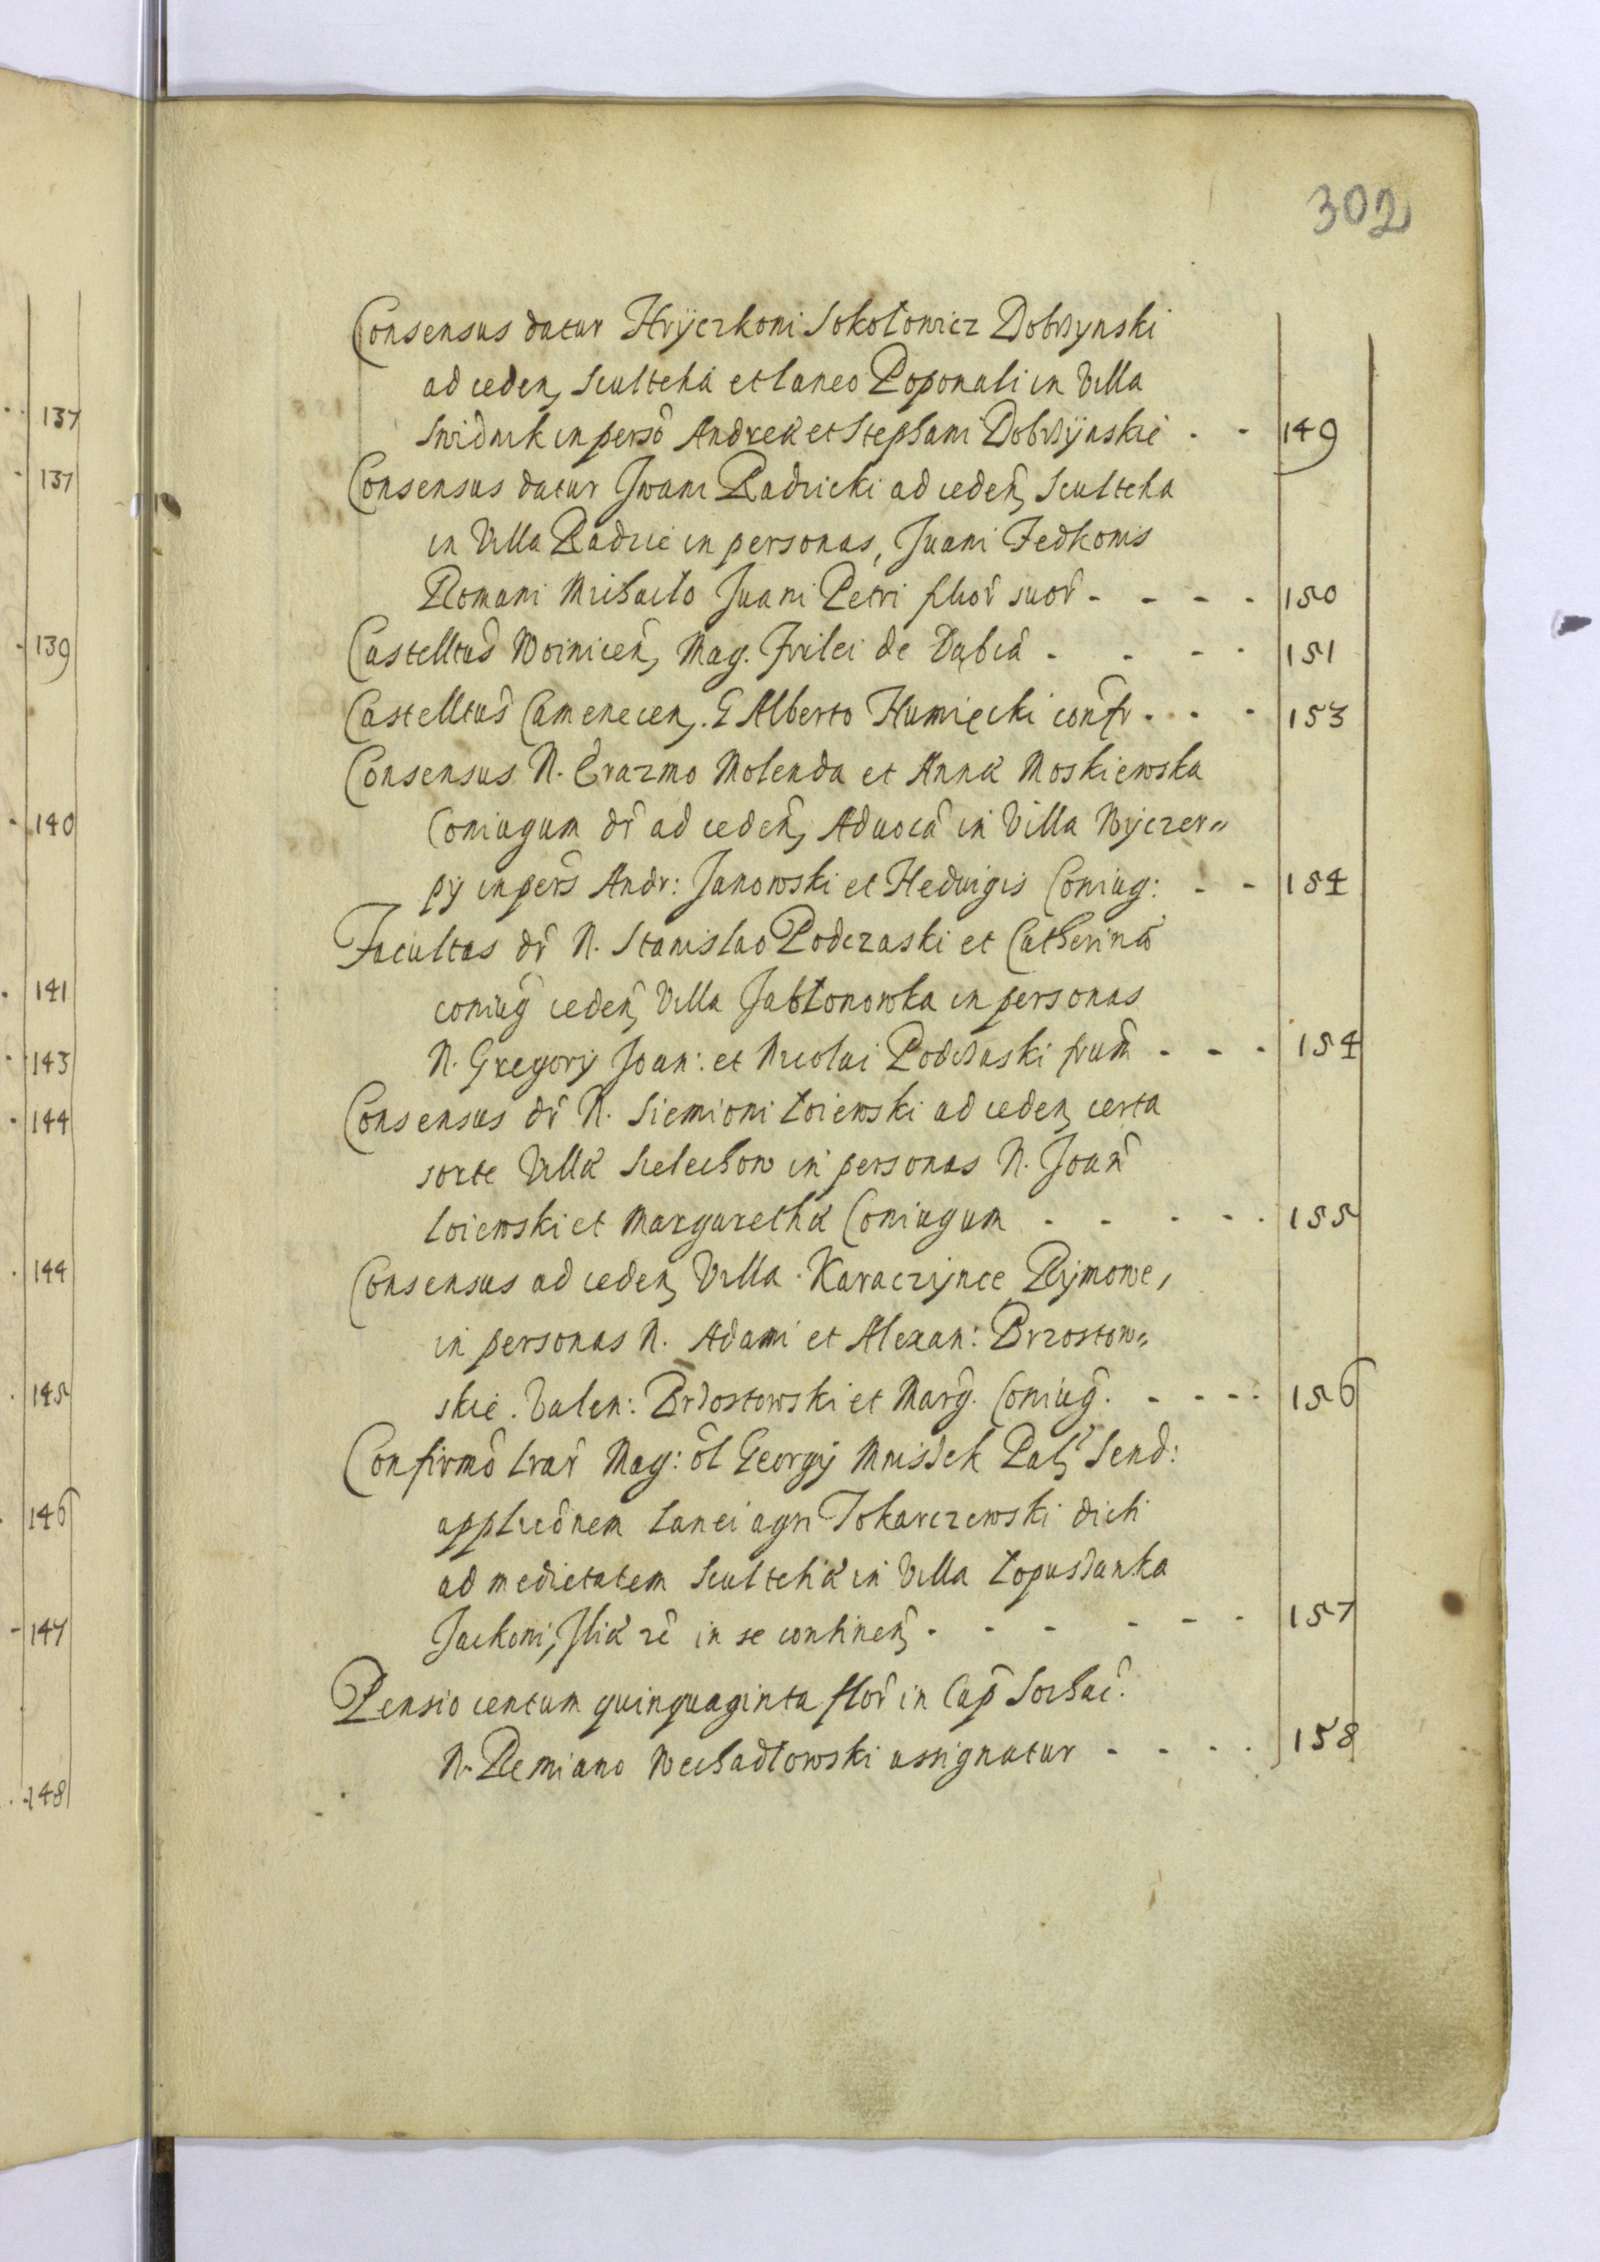 302
Consensus datur Hryczkoni Sokołowicz Dobrzynski
ad ceden, Scultetia et laneo Poponali in Villa
Swidnik in perso Andreæ et Stephani Dobrzÿnskie - - 149
Consensus datur Jwani Radzicki ad ceden, Scultetia
in Villa Radzie in personas, Juani Fedkonis
Romani Michaiło Juani Petri filior suor - - - - 150
Castelltus Woinicen, Mag. Frilei de Dąbia - - - - 151
Castelltus Camenecen, G Alberto Humięcki confr - - - 153
Consensus N. Erazmo Molenda et Annæ Moskiewska
Coniugum dr ad ceden, Aduoca in Villa Wyczer„
pÿ in pers Andr: Janowski et Hedvigis Coniug: - - 154
Facultas dr N. Stanislao Podczaski et Catherinæ
coniug ceden, Villa Jabłonowka in personas
N. Gregorÿ Joan: et Nicolai Podczaski frum - - - 154
Consensus dr N. Siemioni Łoiewski ad ceden, certa
sorte Villæ Sielechow in personas N. Joan
Łoiewski et Margarethæ Coniugum - - - - - 155
Consensus ad ceden, Villa Karaczÿnce Rÿmowe,
in personas N. Adami et Alexan: Brzostow„
skie. Valen: Brzostowski et Marg. Coniug. - - - - 156
Confirmo Lrar Mag: ol Georgÿ Mniszek Pal, Send:
applicõnem Lanei agri Tokarczewski dicti
ad medietatem Scultetiæ in Villa Łopuszanka
Jackoni, Iliæ rc in se continen, - - - - - - 157
Pensio centum quinquaginta flor in Cap Sochac.
N. Remiano Wechadłowski assignatur - - - - 158
137
137
139
140
141
143
144
144
145
146
147
148